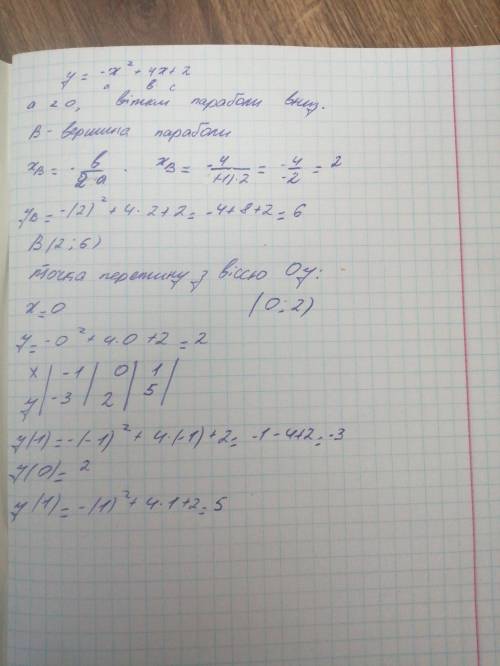 y = -x² + 4x + 2
a в c
a < 0, вітки параболи вниз.
B - вершина параболи
xB = - в/(2·a). xB = -4/((-1)·2) = -4/-2 = 2
yB = -(2)² + 4·2 + 2 = -4 + 8 + 2 = 6
B(2; 6)
Точка перетину з віссю Oy:
x = 0 (0; 2)
y = -0² + 4·0 + 2 = 2
x | -1 | 0 | 1 |
y | -3 | 2 | 5 |
y(1) = -(-1)² + 4·(-1) + 2 = -1 - 4 + 2 = -3
y(0) = 2
y(1) = -(1)² + 4·1 + 2 = 5